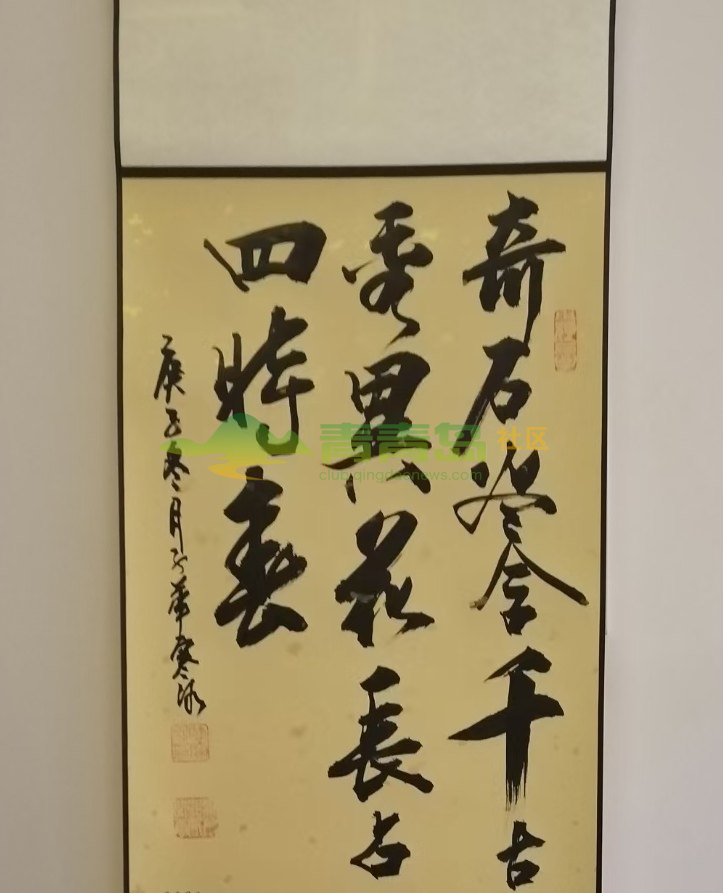 奇石尽含千古
秀異花長占
四時春
庚子冬月
青青岛社区
club.qingdaonews.com